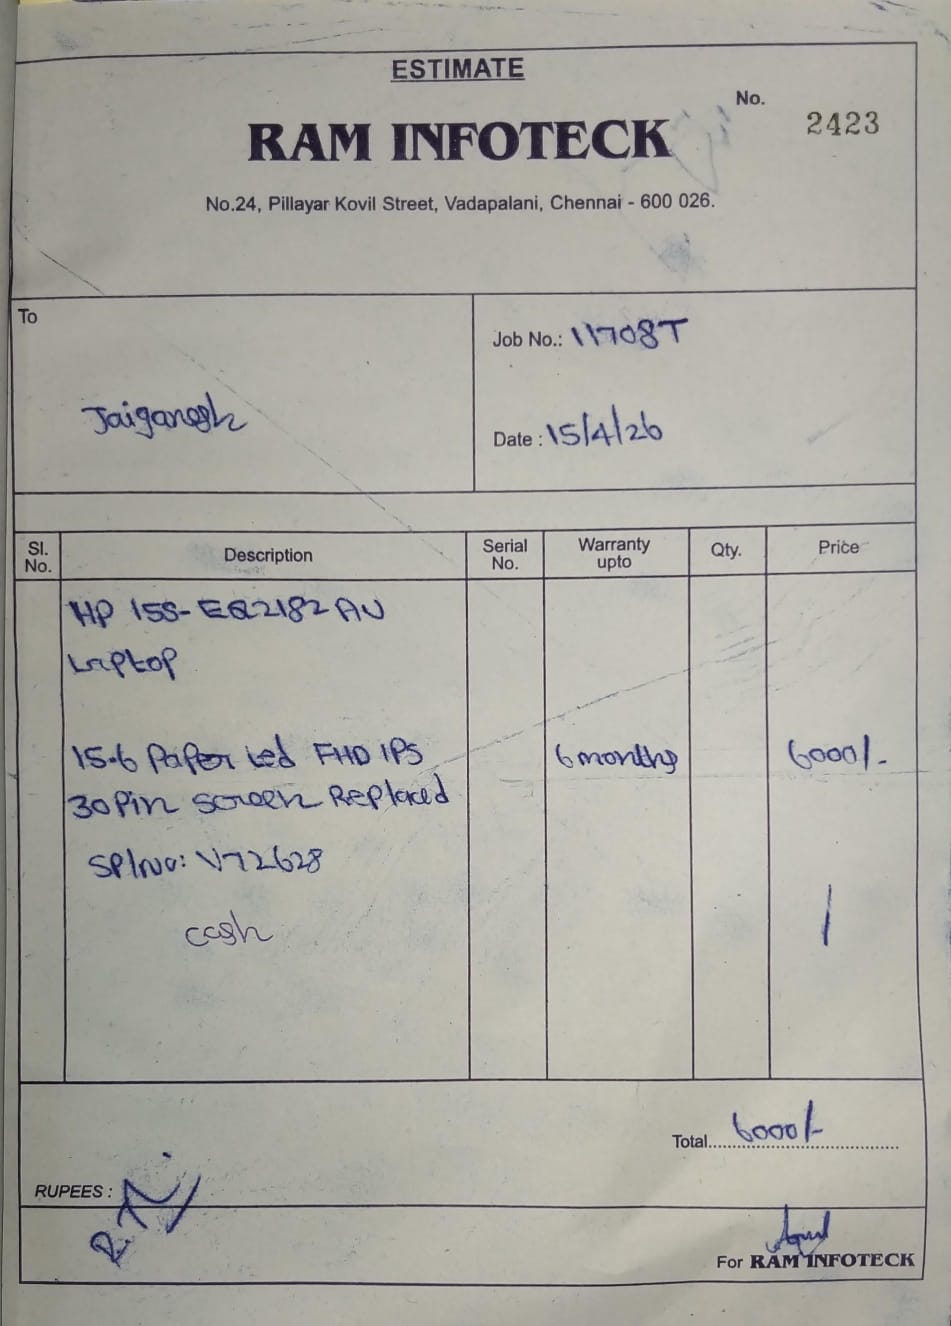 ESTIMATE
No.
2423
RAM INFOTECK
No.24, Pillayar Kovil Street, Vadapalani, Chennai - 600 026.
To
Job No.: 11708T
Jaiganesh
Date : 15/4/26
Sl. No.
Description
Serial No.
Warranty upto
Qty.
Price
HP 15S-EQ2182AU
Laptop
15.6 Paper Led FHD IPS
6 months
6000/-
30 Pin Screen Replaced
SP/No: V72628
cash
Total 6000/-
RUPEES :
For RAM INFOTECK